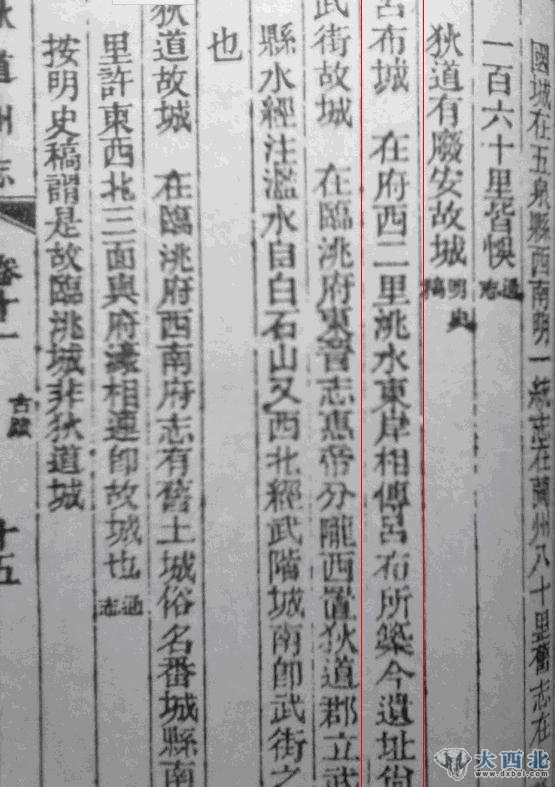 國城在五泉縣西南明一統志在蘭州八十里舊志在
一百六十里皆悞通志
狄道有廢安故城明史稿
呂布城 在府西二里洮水東岸相傳呂布所築今遺址尙
武街故城 在臨洮府東晉志惠帝分隴西置狄道郡立武
縣水經注濫水自白石山又西北經武階城南卽武街之
也
狄道故城 在臨洮府西南府志有舊土城俗名番城縣南
里許東西北三面與府濠相連卽故城也通志
按明史稿謂是故臨洮城非狄道城
狄道州志 卷十一 古蹟 十五
大西北
www.dxbei.com